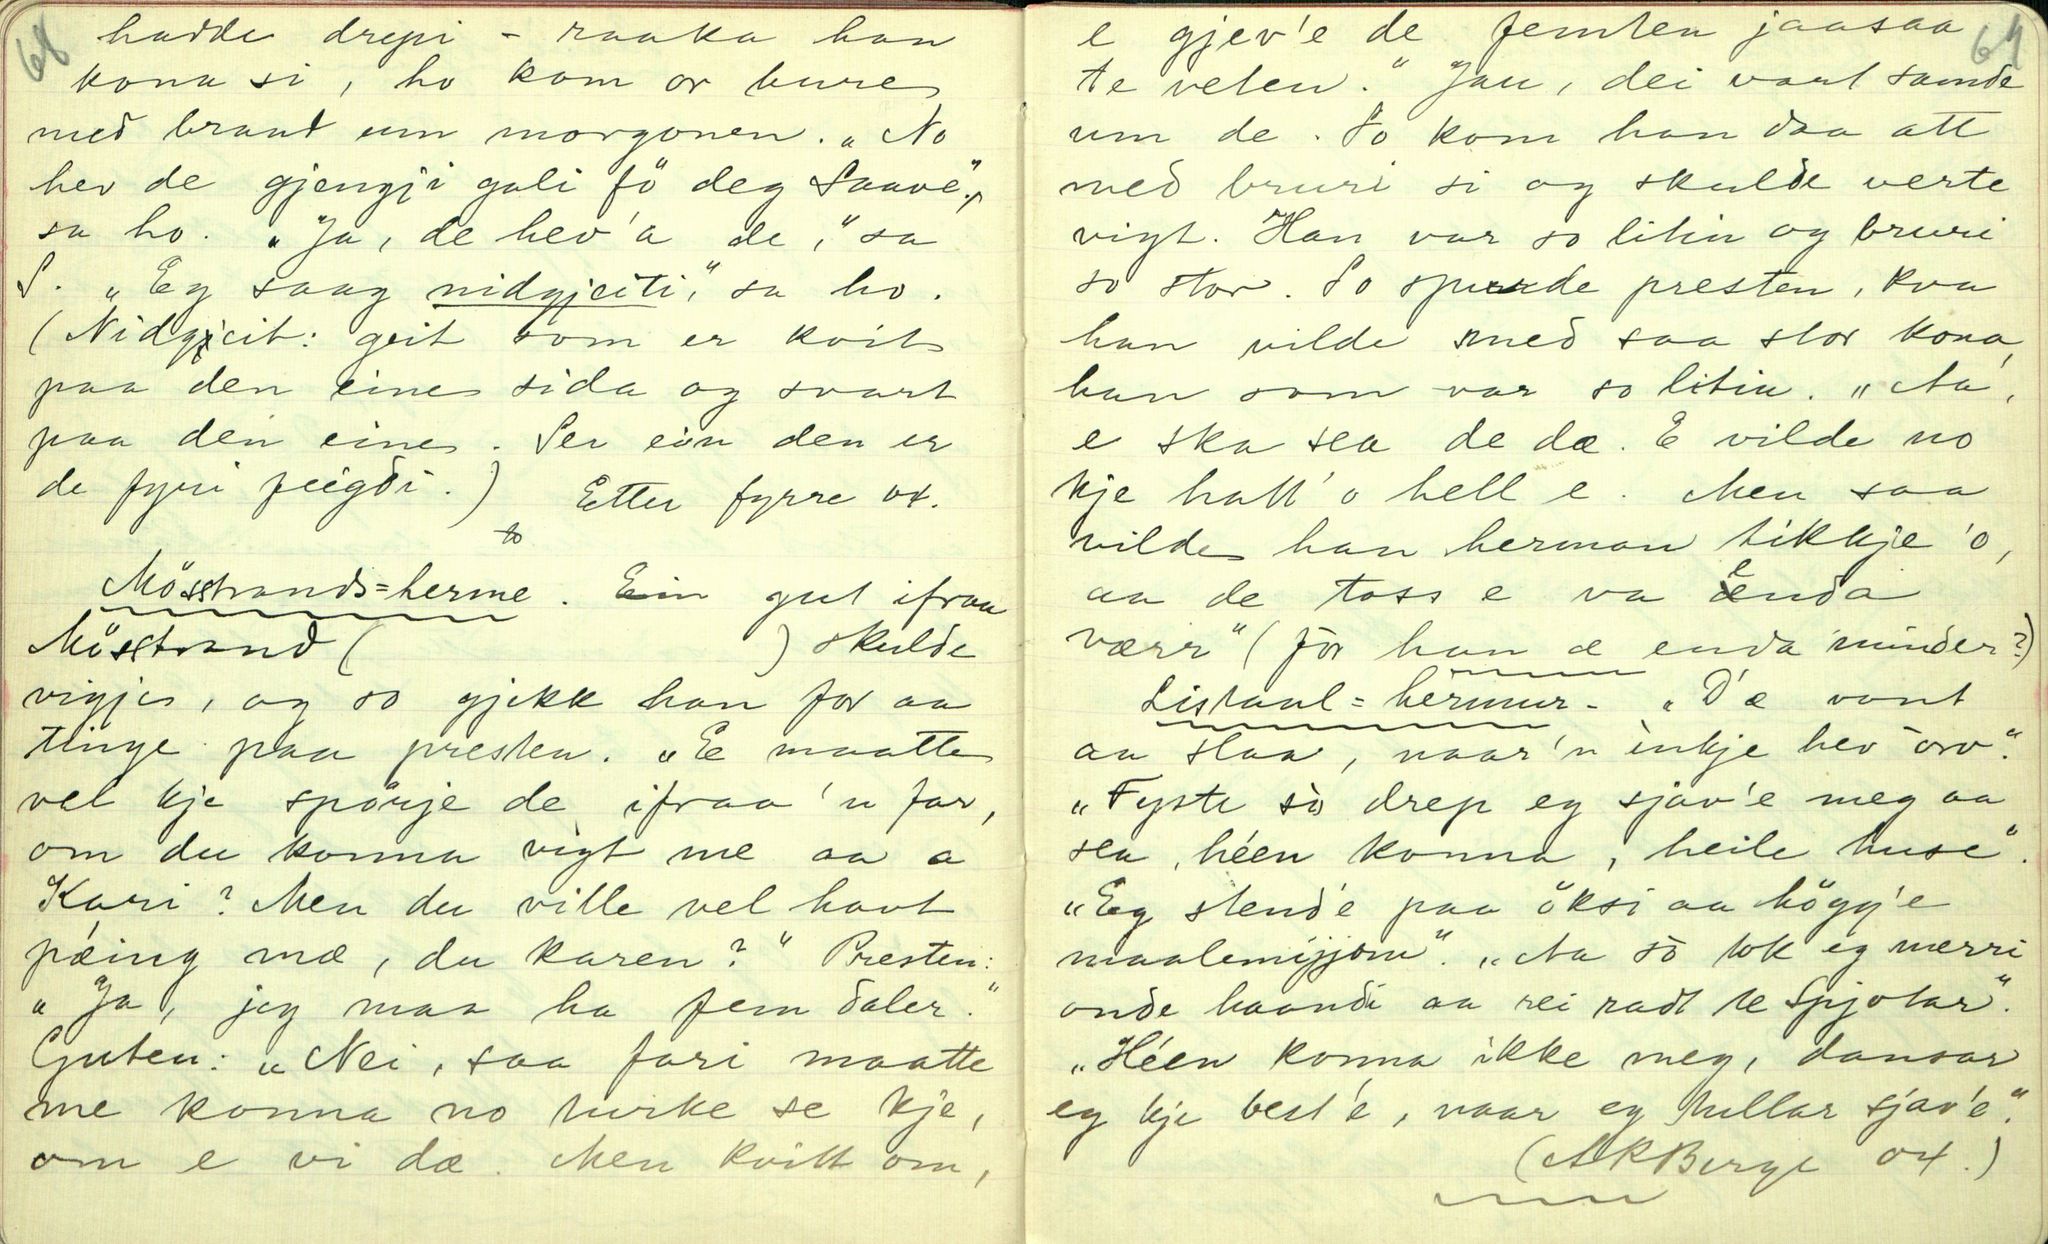 68
hadde drepi - raaka han
kona si, ho kom or bure
med braud um morgonen. „No
hev de gjengji gali fö deg Saave",
sa ho. „Ja, de hev'a de," sa
S. „Eg saag nidgjeiti," sa ho.
(Nidgjeit: geit som er kvit
paa den eine sida og svart
paa den eine. Ser ein den er
de fyri feigdi.) Etter fyrre ox.
to
Mösstrands=herme. Ein gut ifraa
Mösstrand ( ) skulde
vigjes, og so gjekk han for aa
tinge paa presten. „E maatte
vel kje spörje de ifraa 'n far,
om du konna vigt me aa a
Kari? Men du ville vel havt
pæing mæ, du karen?" Presten:
„Ja, jeg maa ha fem daler."
Guten: „Nei, saa fari maatte
me konna no turke se kje,
om e vi dæ. Men kvitt om,
69
e gjev'e de femten jaasaa
te veten." Jau, dei vart samde
um de. So kom han daa att
med bruri si og skulde verte
vigt. Han var so litin og bruri
so stor. So spurde presten, kva
han vilde med saa stor kona,
han som var so litin. „Aa,
e ska sea de dæ. E vilde no
kje hatt'o hell e. Men saa
vilde han herman tikkje 'o,
aa de toss e va enda
værr" (för han æ enda minder?)
Listaul=hermur. „D'æ vont
aa slaa, naar'n inkje hev orv."
„Fyste so drep eg sjav'e meg aa
sea, héen konna, heile huse".
„Eg stend'e paa öksi aa högg'e
maalemijjom". „Aa so tok eg mærri
onde haandi aa rei radt te Spjotar".
„Héen konna ikke meg, dansar
eg kje best'e, naar eg tullar sjav'e."
(AKBerge ox.)